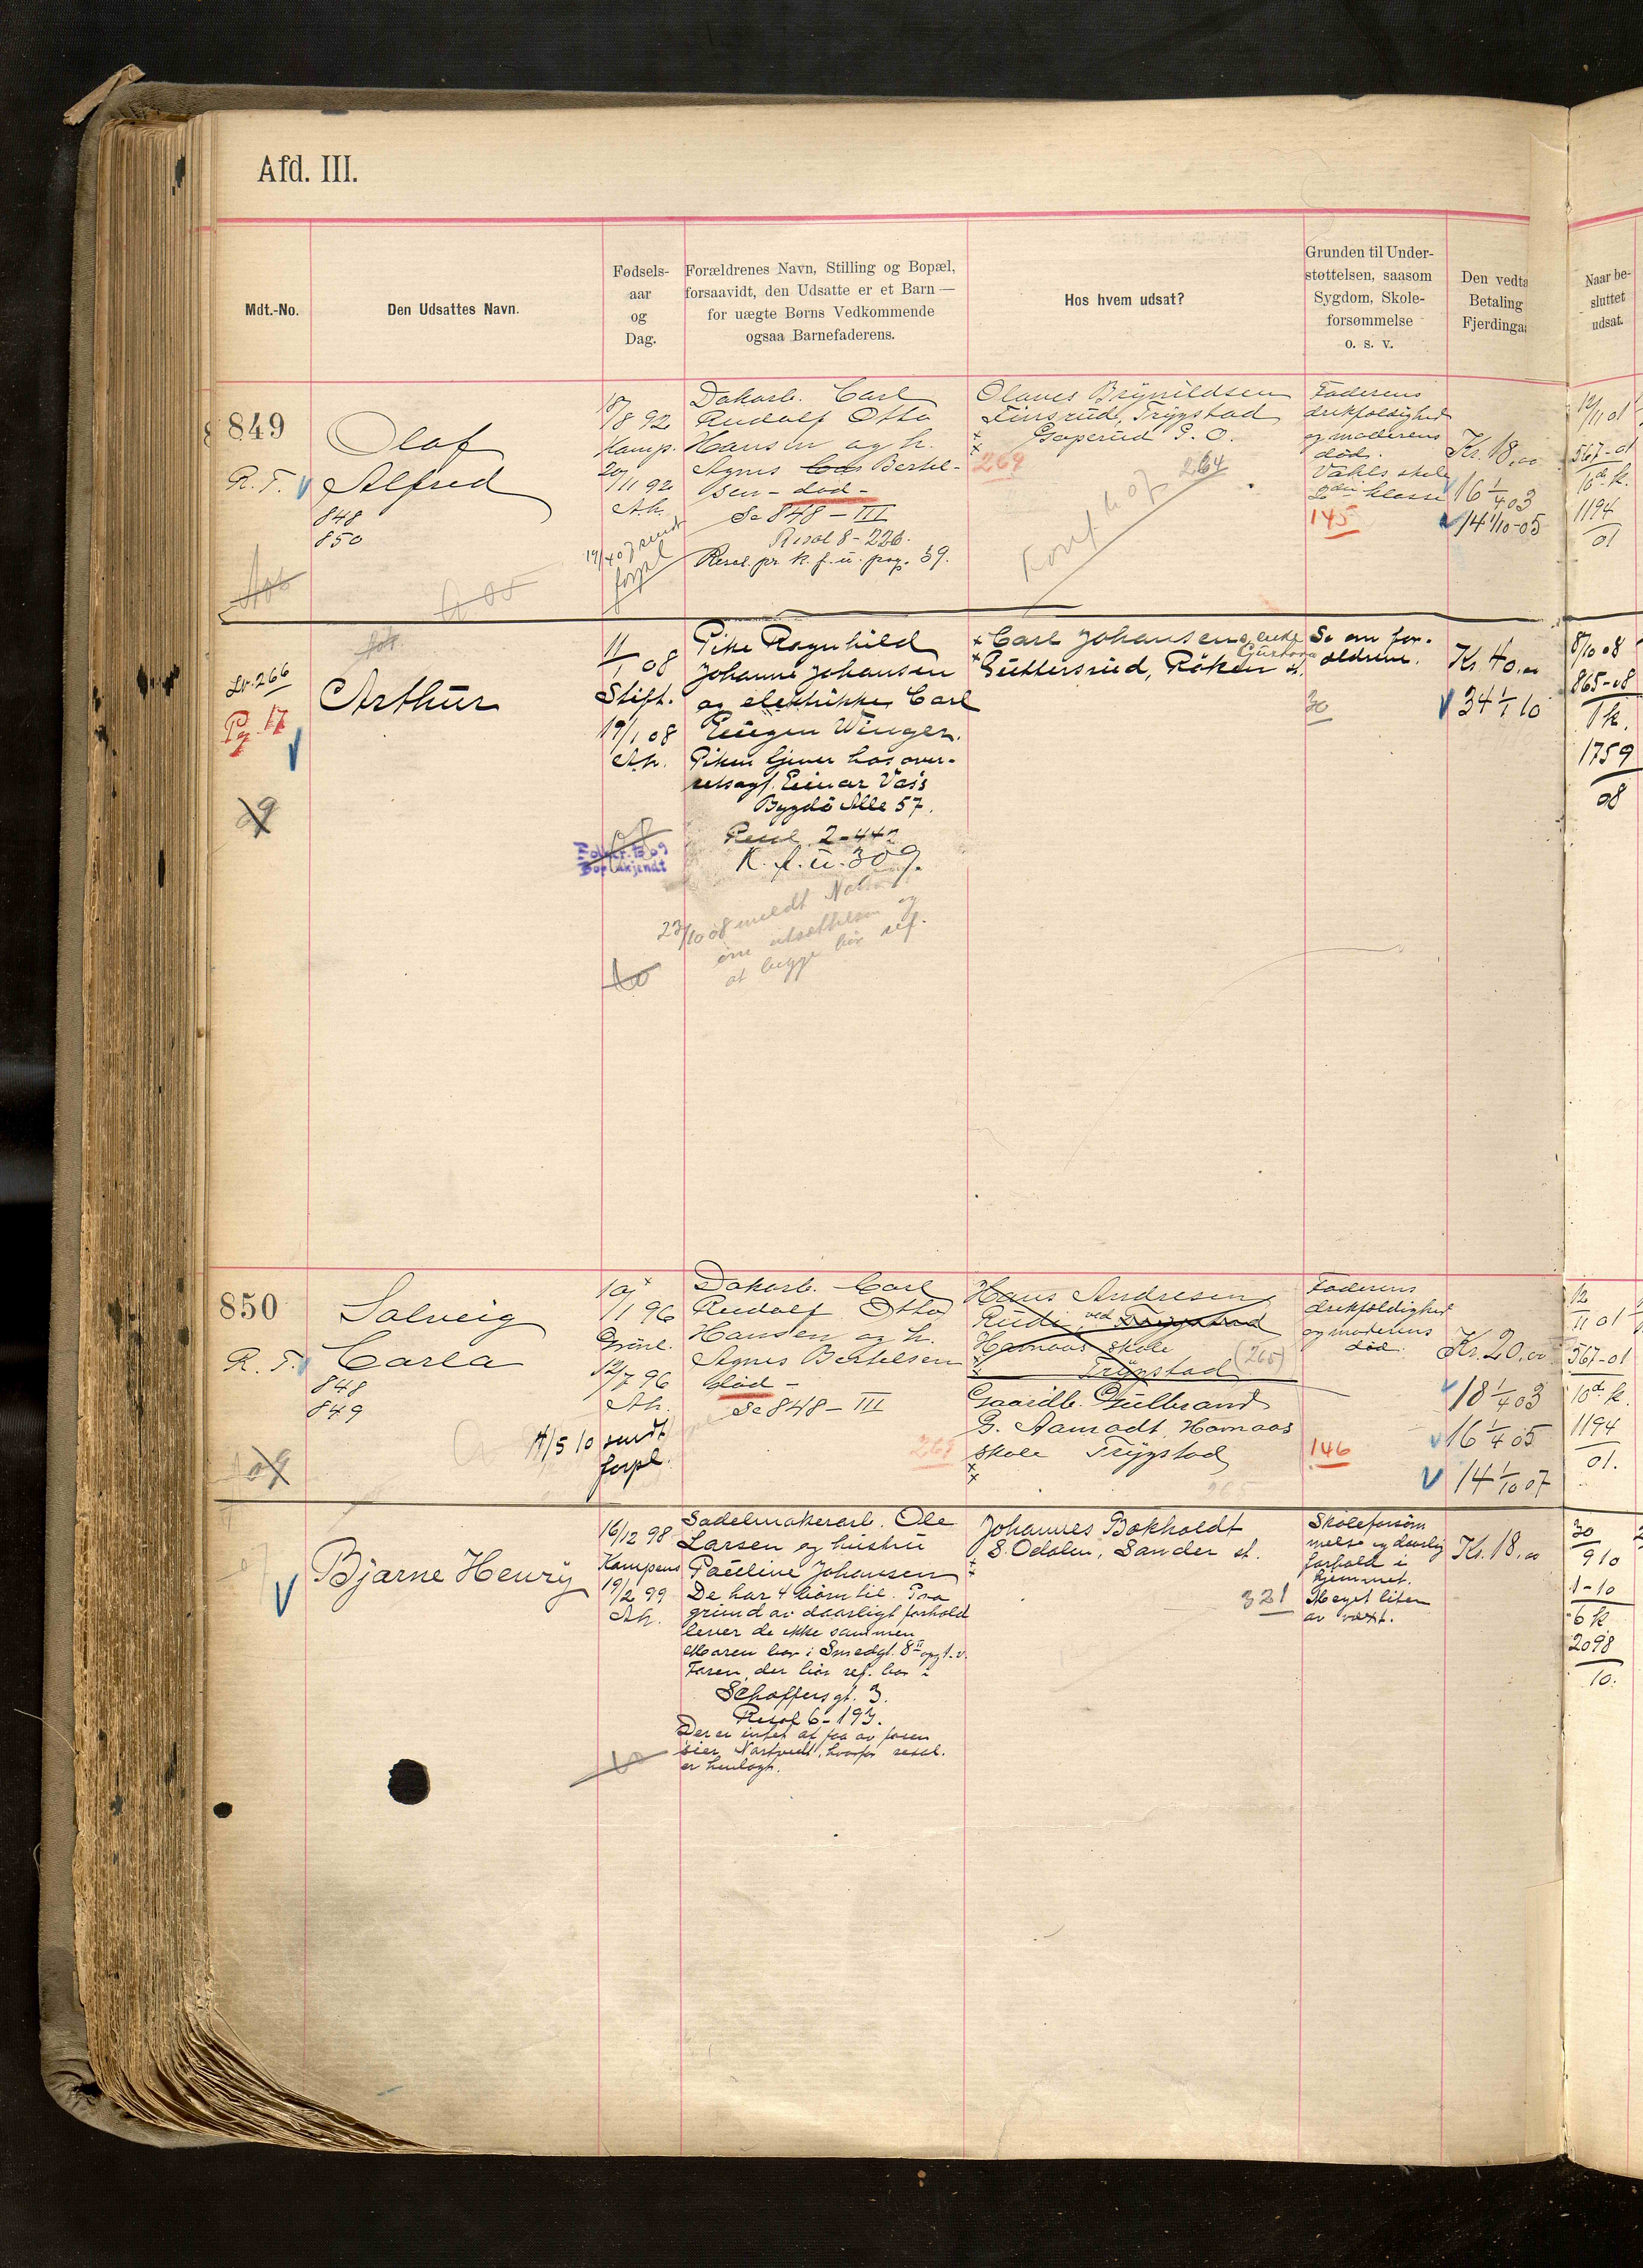 Afd. III.
Mdt.-No.
Den Udsattes Navn.
Fødsels-
aar
og
Dag.
Forældrenes Navn, Stilling og Bopæl,
forsaavidt, den Udsatte er et Barn —
for uægte Børns Vedkommende
ogsaa Barnefaderens.
Hos hvem udsat?
Grunden til Under-
støttelsen, saasom
Sygdom, Skole-
forsømmelse
o. s. v.
Den vedta
Betaling
Fjerdingaa
Naar be-
sluttet
udsat.
849
R. T.
Olaf
Alfred
848
850
18/8 92
Kamp.
20/11 92
Ak.
19/4 07 sendt
forpl
Dakarb. Carl
Rudolf Otto
Hansen og h.
Agnes Bertel-
sen - död -
Se 848 - III
Resol 8 - 226.
Resol. pr. K. f. u. pag. 59.
Olaves Brynildsen
Finsrud, Trygstad
Gaperud P. O.
269
264
Faderens
drikfældighed
og moderens
död.
Vahls skole
2den klasse
145
Kr. 18,00
16 1/4 03
14 1/10 05
12/11 01
567-01
10d k.
1194
01
Lv. 266
Pg. 17
Arthur
11/1 08
Stift.
19/1 08
Ak.
Pike Ragnhild
Johanne Johansen
og elektriker Carl
Eugen Winger.
Piken tjener hos over-
retssagf. Einar Vas's
Bygdö Alle 57.
Resol. 2-442
K. f. u. 309.
23/10 08 meldt
om utsættelsen og
at begge bör ref.
Carl Johansen
Guttersrud, Röken st.
Se om for-
ældrene.
30
Kr. 40.00
34 1/1 10
8/10 08
865-08
1 k.
1759
08
850
R. T.
Solveig
Carla
848
849
10/1 96
Grünl.
12/7 96
Ak.
11/5 10 sendt
forpl.
Dakarb. Carl
Rudolf Otto
Hansen og h.
Agnes Bertelsen
död -
Se 848 - III
Hans Andresen
Rudi ved Trygstad
Hamaas skole
Trygstad (265)
Gaardb. Gulbrand
G. Aamodt, Hamaas
skole Trygstad
265
Faderens
drikfældighed
og moderens
död.
146
Kr. 20,00
18 1/4 03
16 1/4 05
14 1/10 07
12/11 01
567-01
10d. k.
1194
01.
Bjarne Henry
16/12 98
Kampens
19/2 99
Ak.
Sadelmakerarb. Ole
Larsen og hustru
Pauline Johansen
De har 4 barn til. Paa
grund av daarligt forhold
lever de ikke sammen
Moren bor i Smedgt. 8 II opg. t. v.
Faren, der bör ref. bor i
Schaffersgt. 3.
Resol 6 - 193.
Der er intet at faa av faren
sier, hvorfor resol.
er henlagt.
Johannes Bokholdt
S. Odalen, Sander st.
321
Skoleforsöm
melse og daarlig
forhold i
hjemmet.
Meget liten
av vækst.
Kr. 18.00
30
9 10
1-10
6 k.
2098
10.